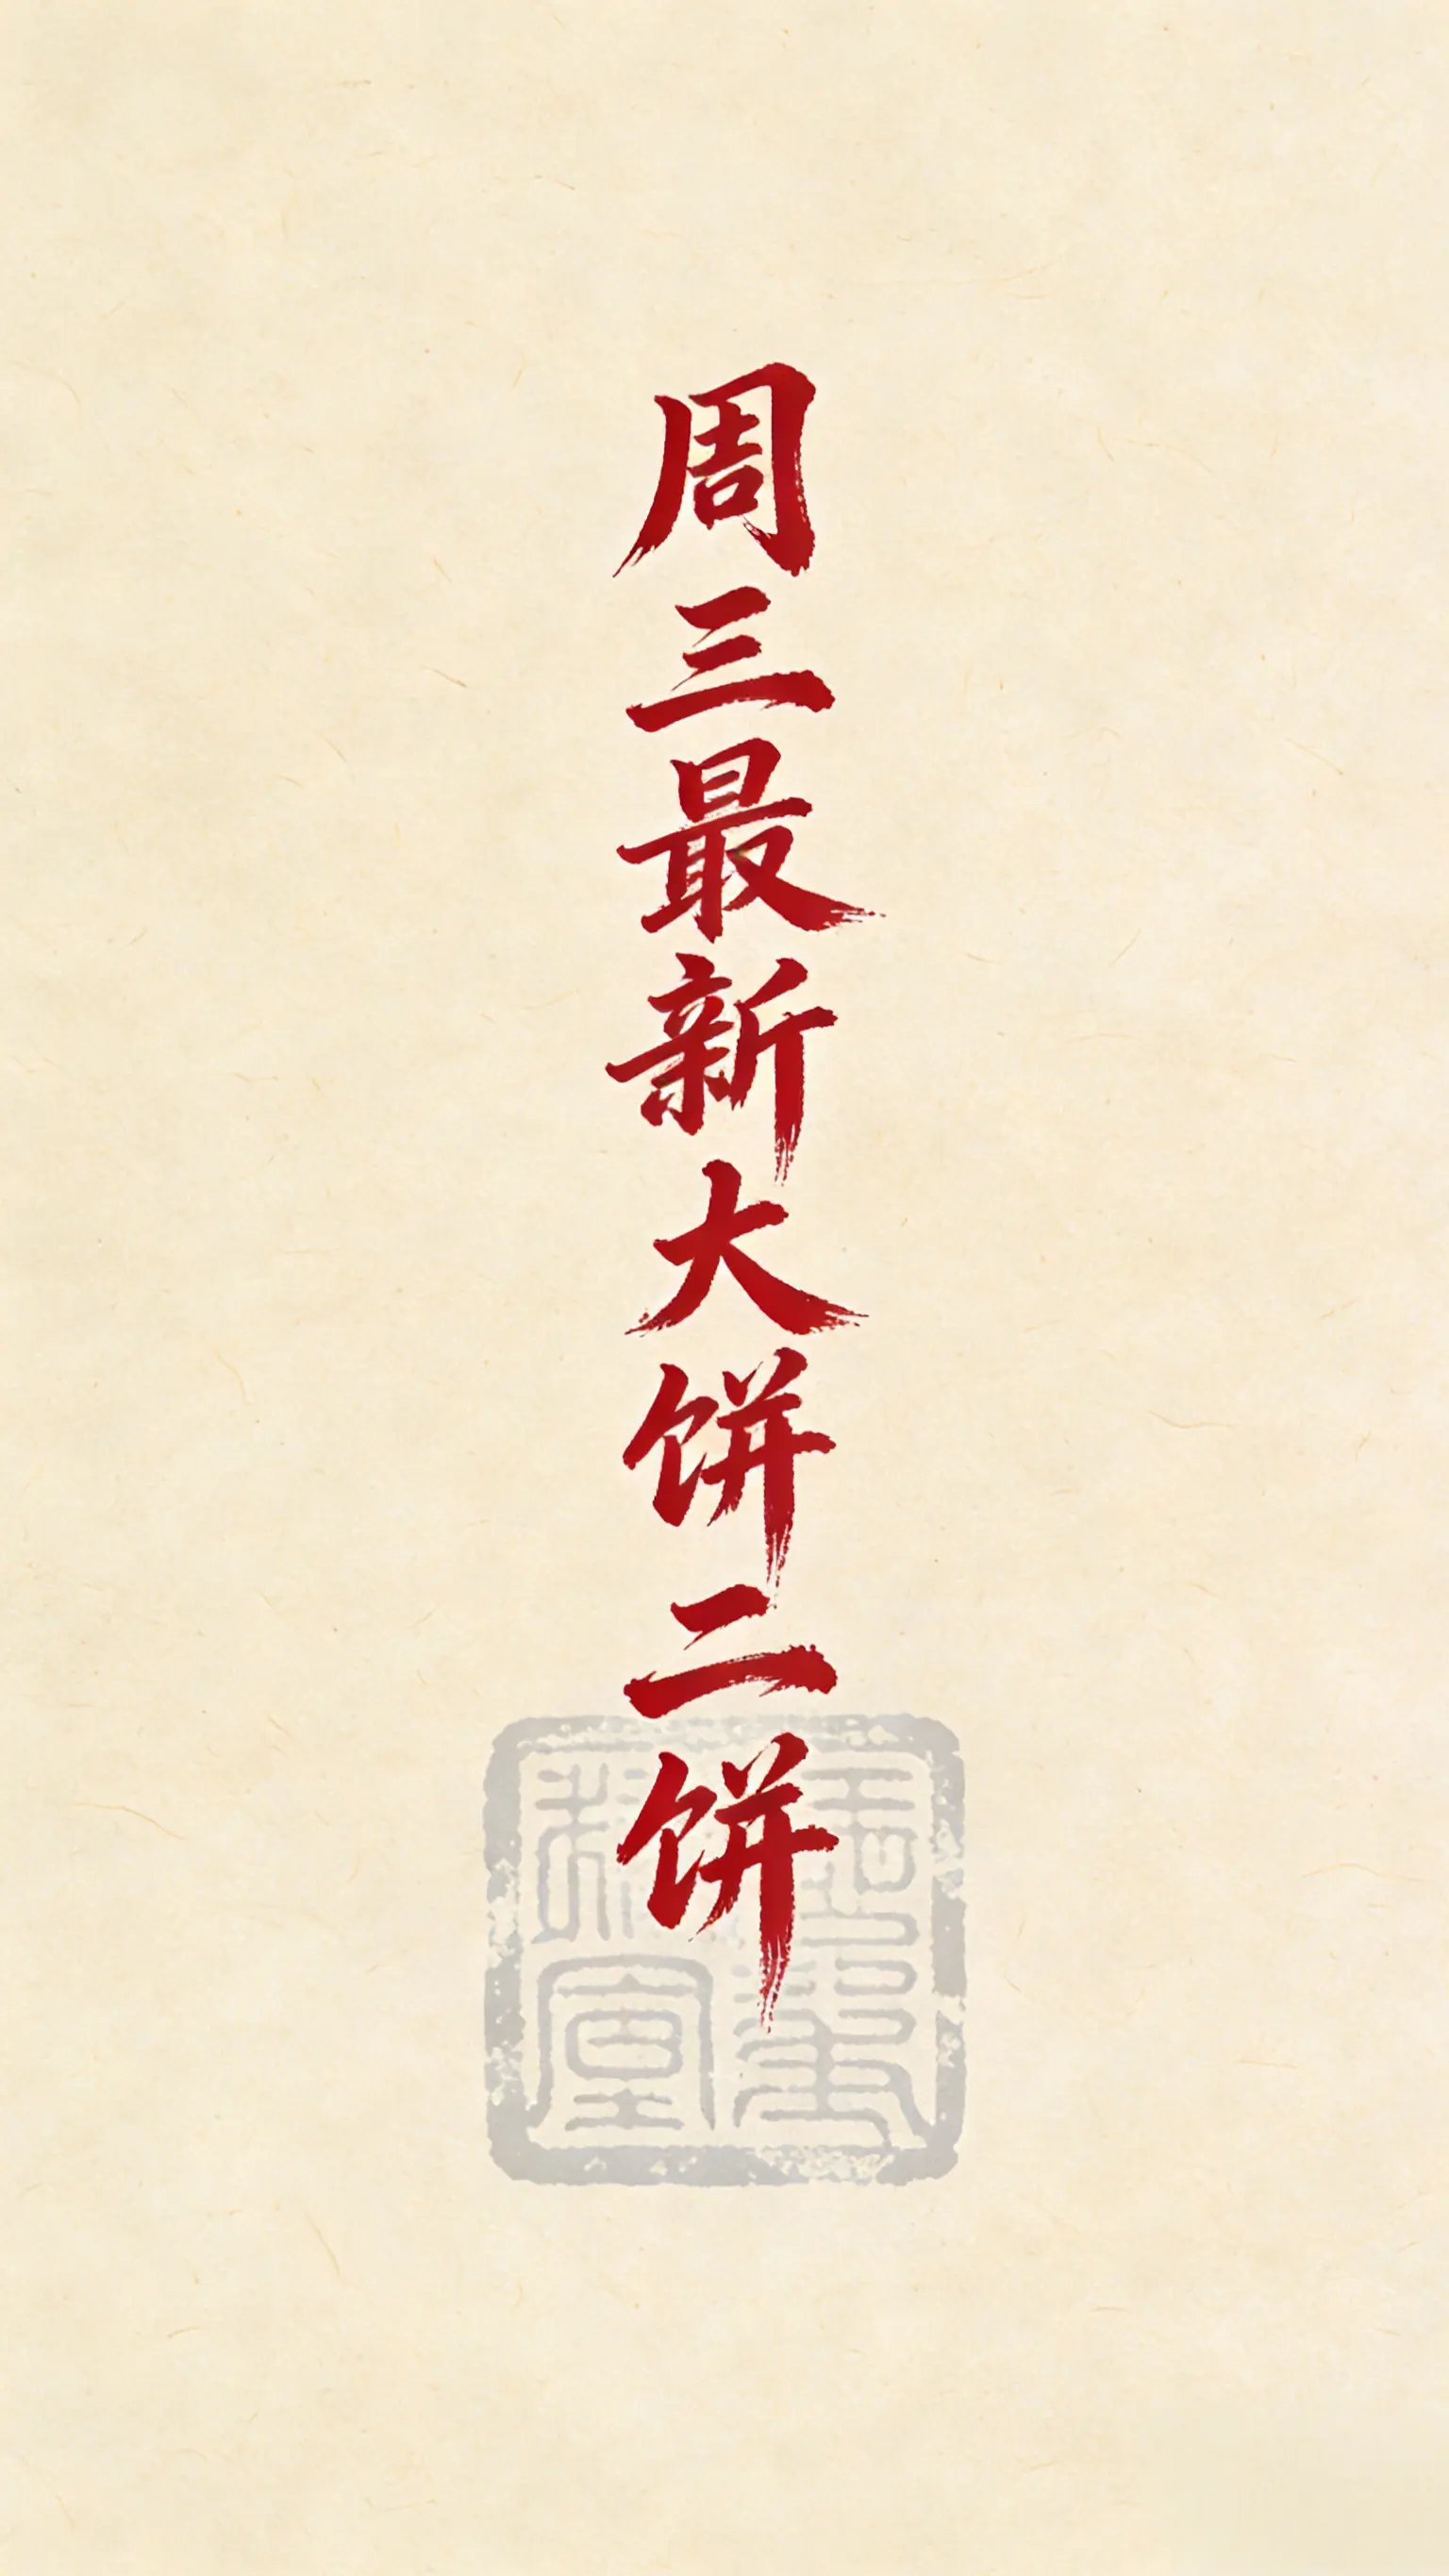 周三最新大饼二饼